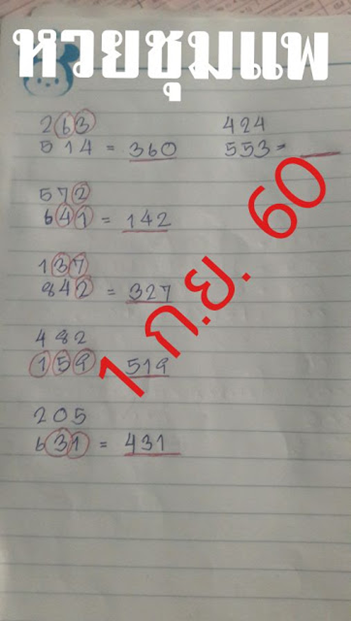 หวยชุมแพ
263
514 = 360
572
641 = 142
137
842 = 327
482
159 519
205
631 = 431
424
553 =
1 ก.ย. 60